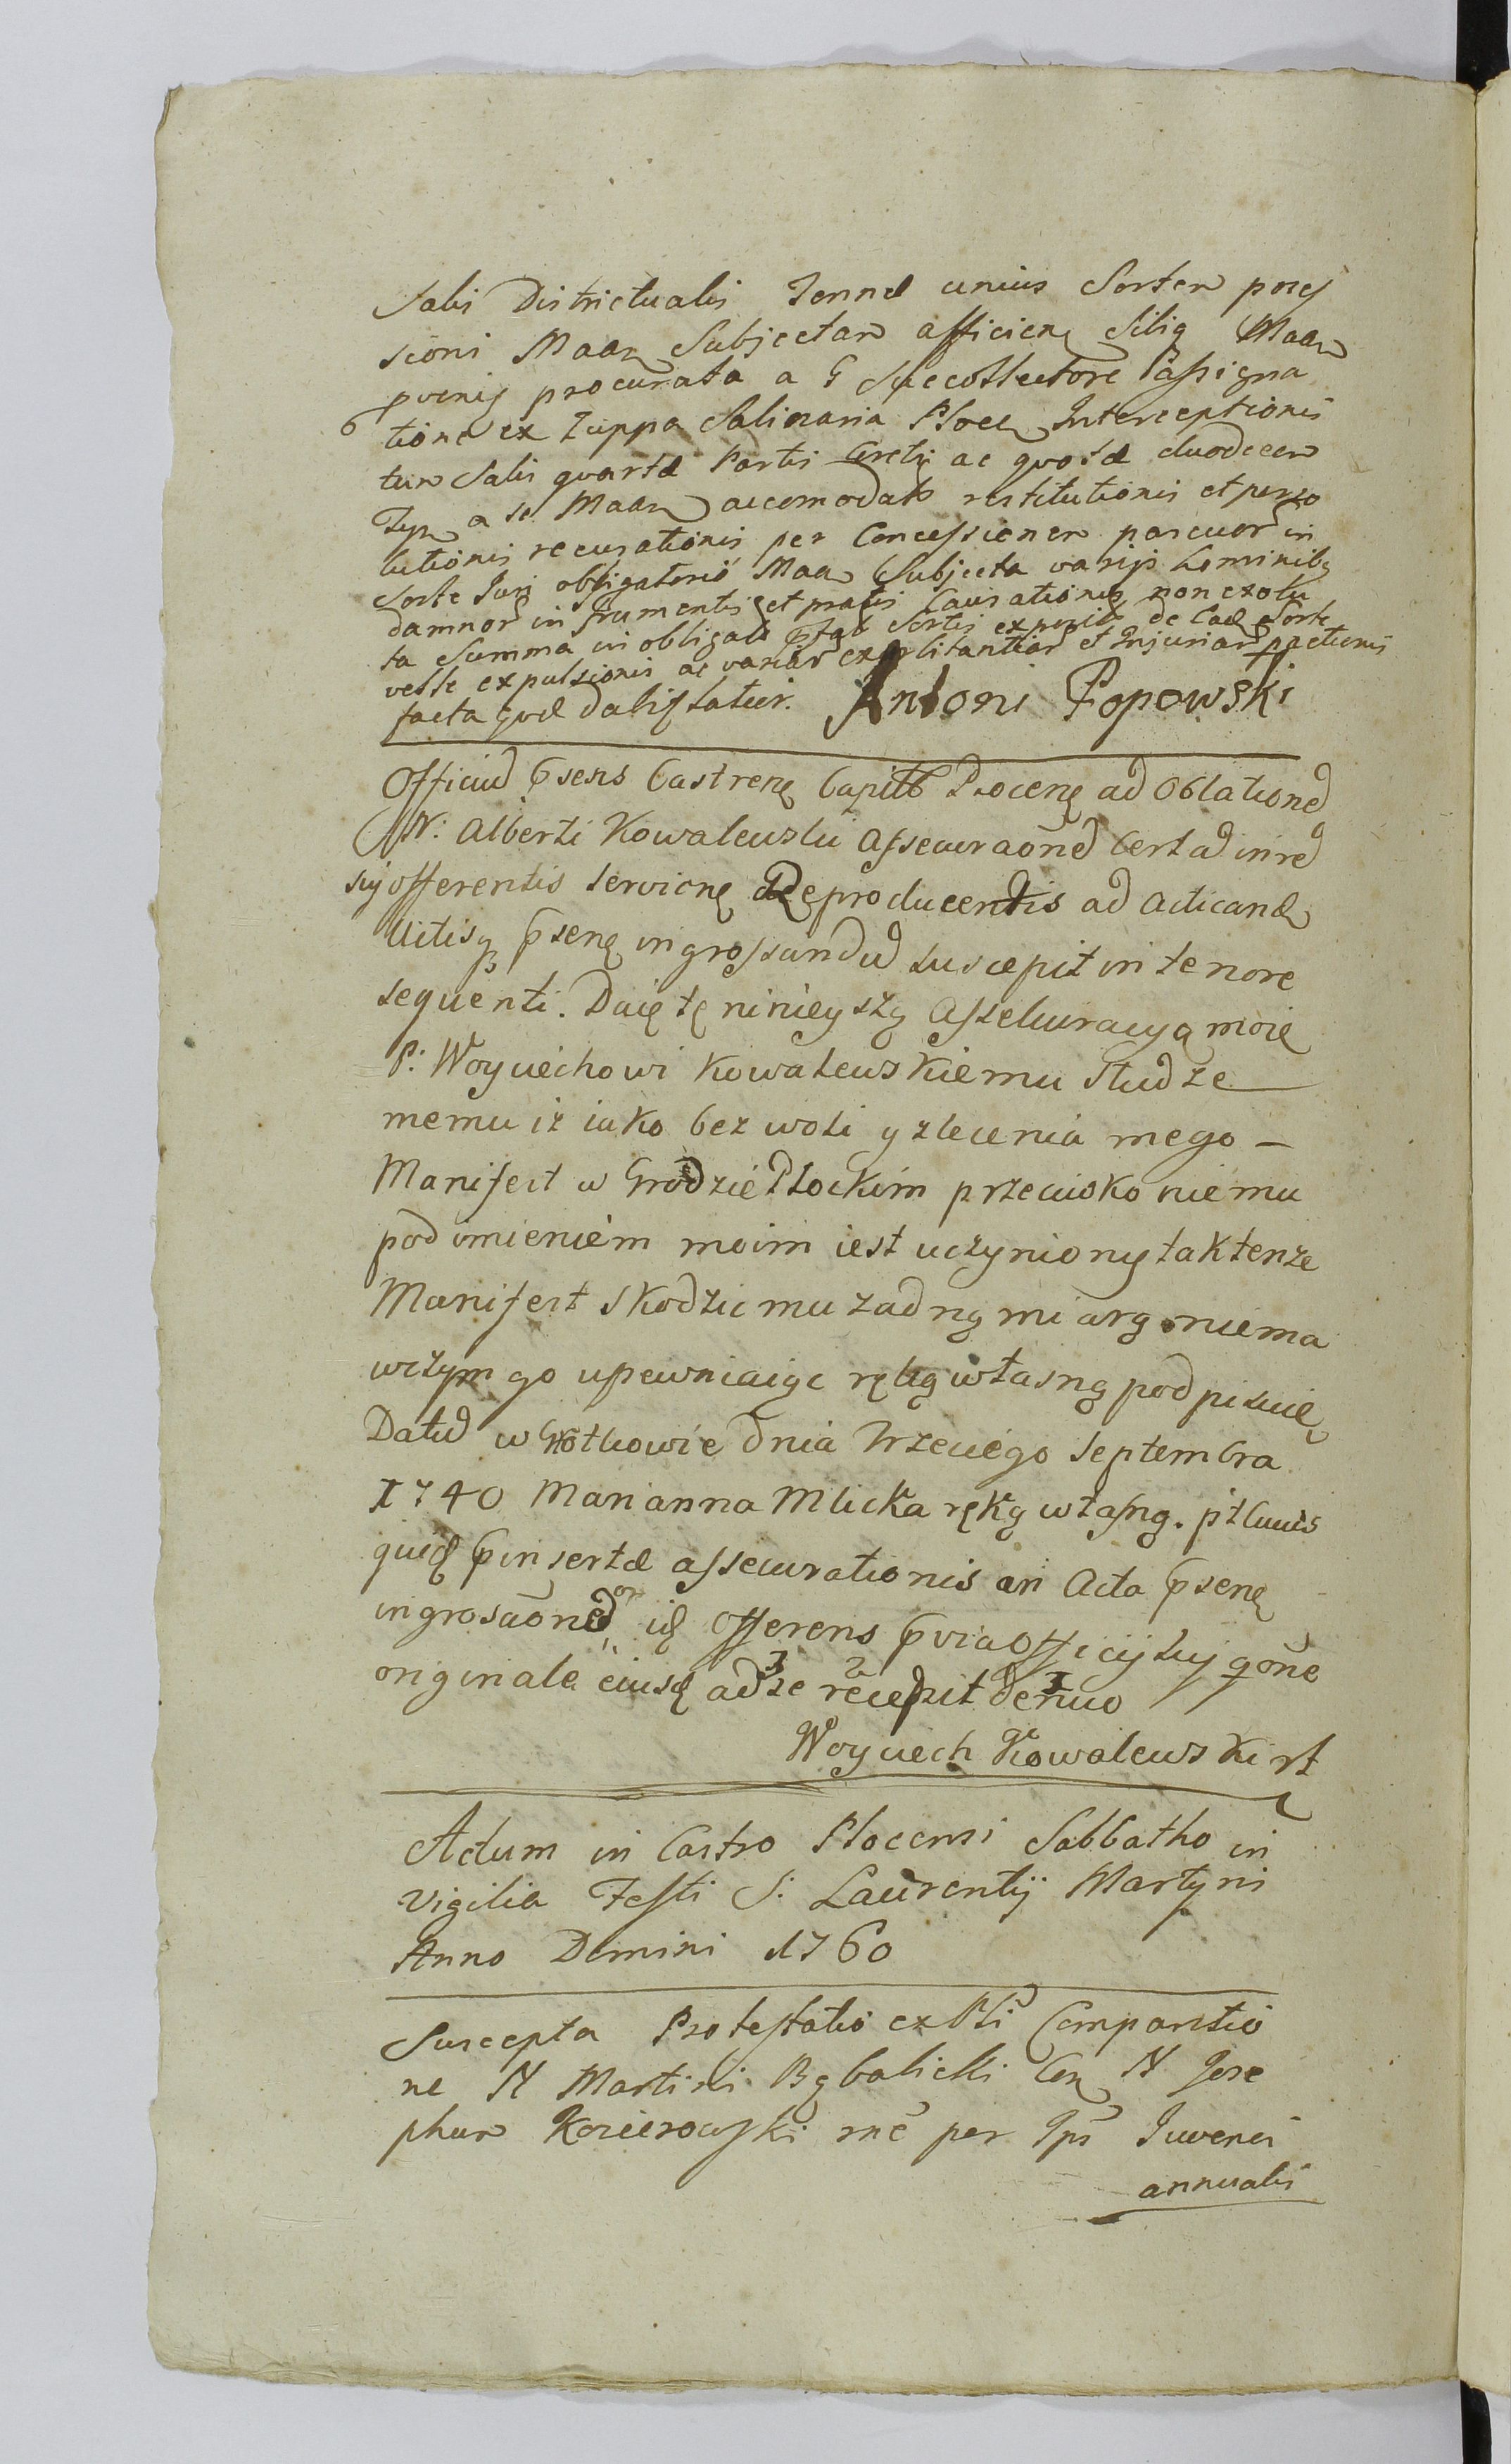 Salis Districtualis Tonnæ unius Sorten posses
sioni Maan Subjectan afficien Silig Maan
provenis procurata a G Succollectore Passigna
6 tione ex Zuppa Salinaria Ploccn Interceptionis
tum Salis quartæ Partis Cretis ac quotæ duodecem
Typ a se Maan accomodato restitutionis et perso
lutionis recusationis per Concessionem pascuor in
Sorte Juri obligatorio Maan Subjecta varijs hominibg
damnor in frumentis et pratis Causationis non exolu
ta Summa in obligato Sortis de Ead Sorte
velle expulsionis ac variar exorbitantiar et Injuriar ppetionis
facta quæ dabistatur. Antoni Popowski
Officiud psens Castrene Capitl Plocene ad Oblationed
N: Alberti Kowalewski assecuraõned Certad inred
sui offerentis serviene deproducentis ad acticand
Actisq psene ingrossandud suscepit in tenore
sequenti. Daię tę ninieyszą assekuracyą moię
P: Woyciechowi Kowalewskiemu Słudze
memu iż iako bez woli y zlecenia mego –
Manifest w Grodzie Płockim przeciwko niemu
pod imieniem moim iest uczyniony tak tenże
Manifest skodzic mu zadną miarą niema
wczym go upewniaiąc ręką własną podpisuię
Datud w dnia trzeciego Septembra
1740 Marianna Mlicka ręką własną. pt cuius
quid pinsertæ assecurationis in Acta psene
ingrosaõned id Offerens pvia Officij sui qõne
originale eiusd ad se recepit denuo
Woyciech Kowalewski rt
Actum in Castro Plocensi Sabbatho in
Vigilia Festi S: Laurentij Martyris
Anno Domini 1760
Suscepta Protestatio ex Plti Comparitio
ne N Martini Bąbalicki Con N Jose
phum Kosierowski rne per Ips Juvenci
annualis